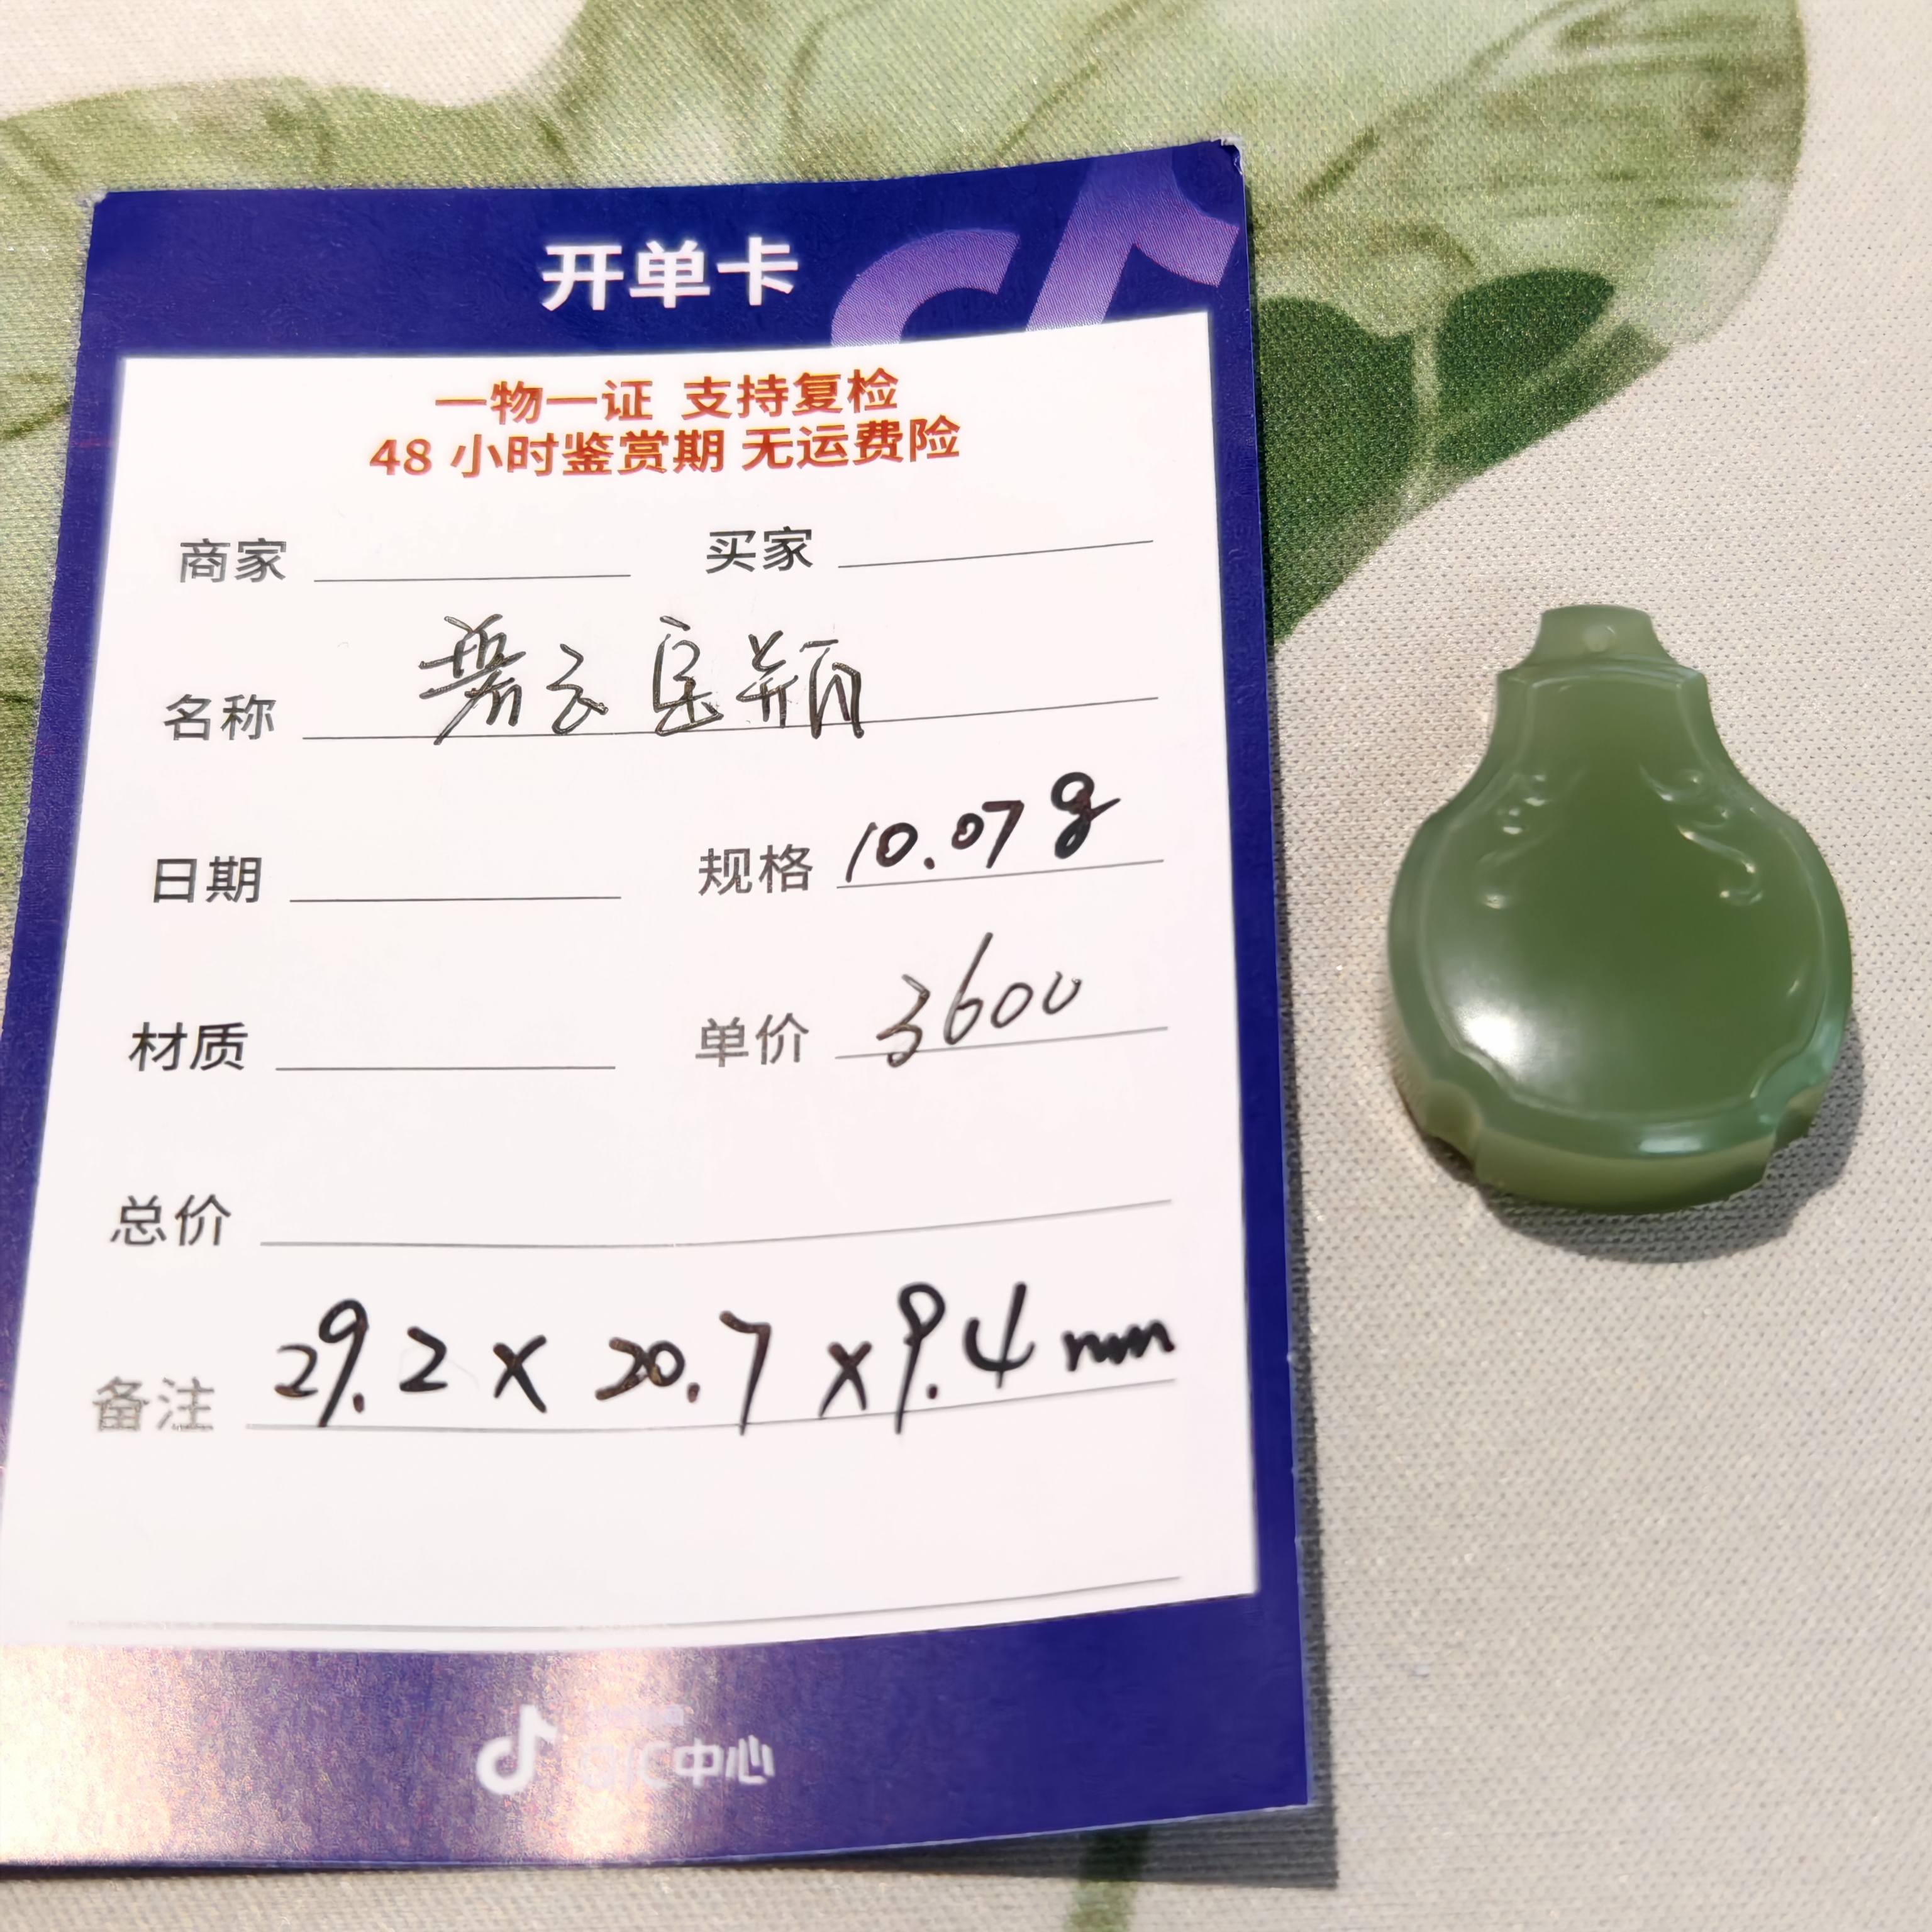 开单卡
一物一证 支持复检
48 小时鉴赏期 无运费险
商家 买家
名称
日期 规格 10.07g
材质 单价 3600
总价
备注 29.2 x 20.7 x 9.4 mm
QIC中心